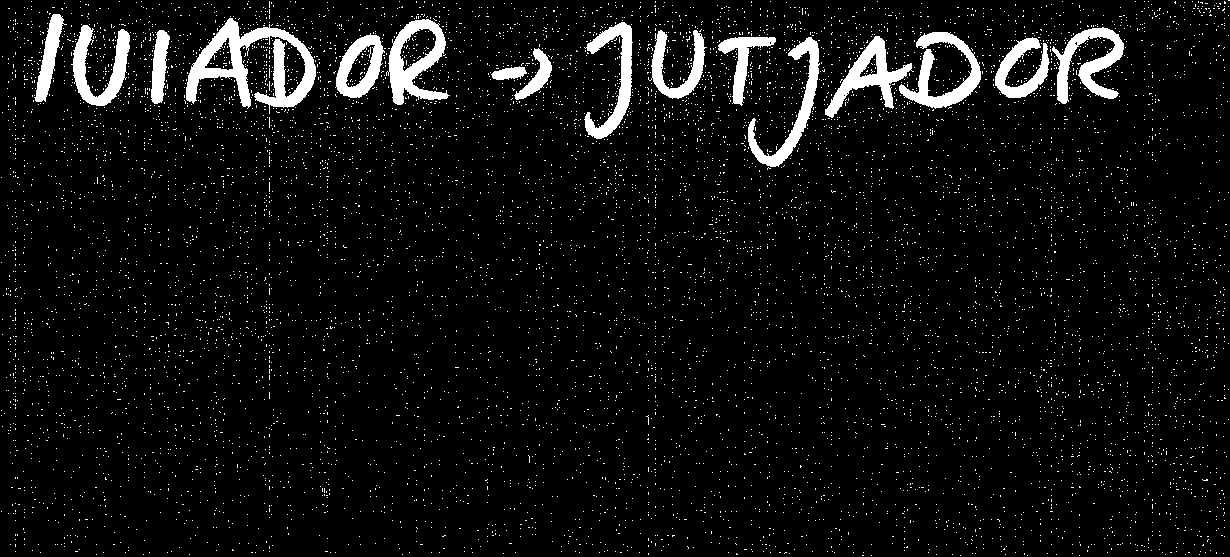 IUIADOR → JUTJADOR